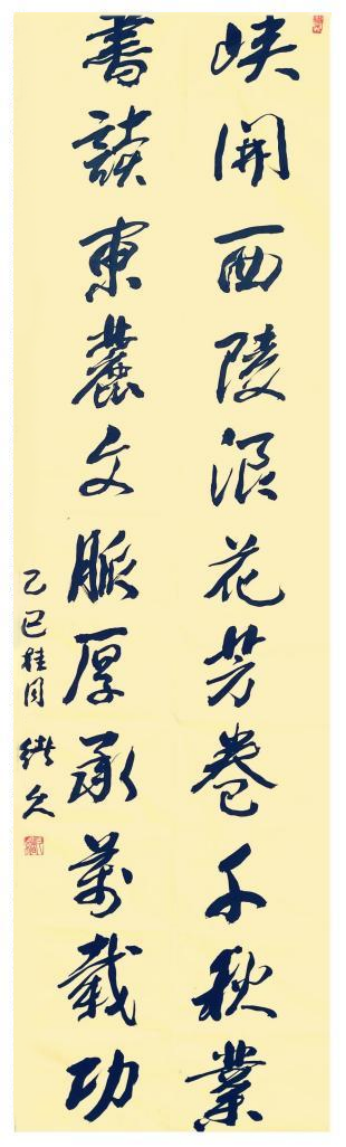 峡開西陵浪花芳卷千秋業
書讀東麓文脈厚承萬載功
乙巳桂月 久